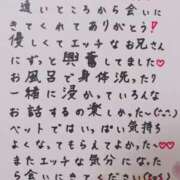 遠いところから会いに
きてくれてありがとう!
優しくてエッチなお兄さん
にずっと興奮してました♡
お風呂で身体洗ったり
一緒に浸かっていろんな
お話するの楽しかった(^^)
ベットではいっぱい気持ち
よくなってもらえてよかった♡
またエッチな気分になった
ら会いにきてください